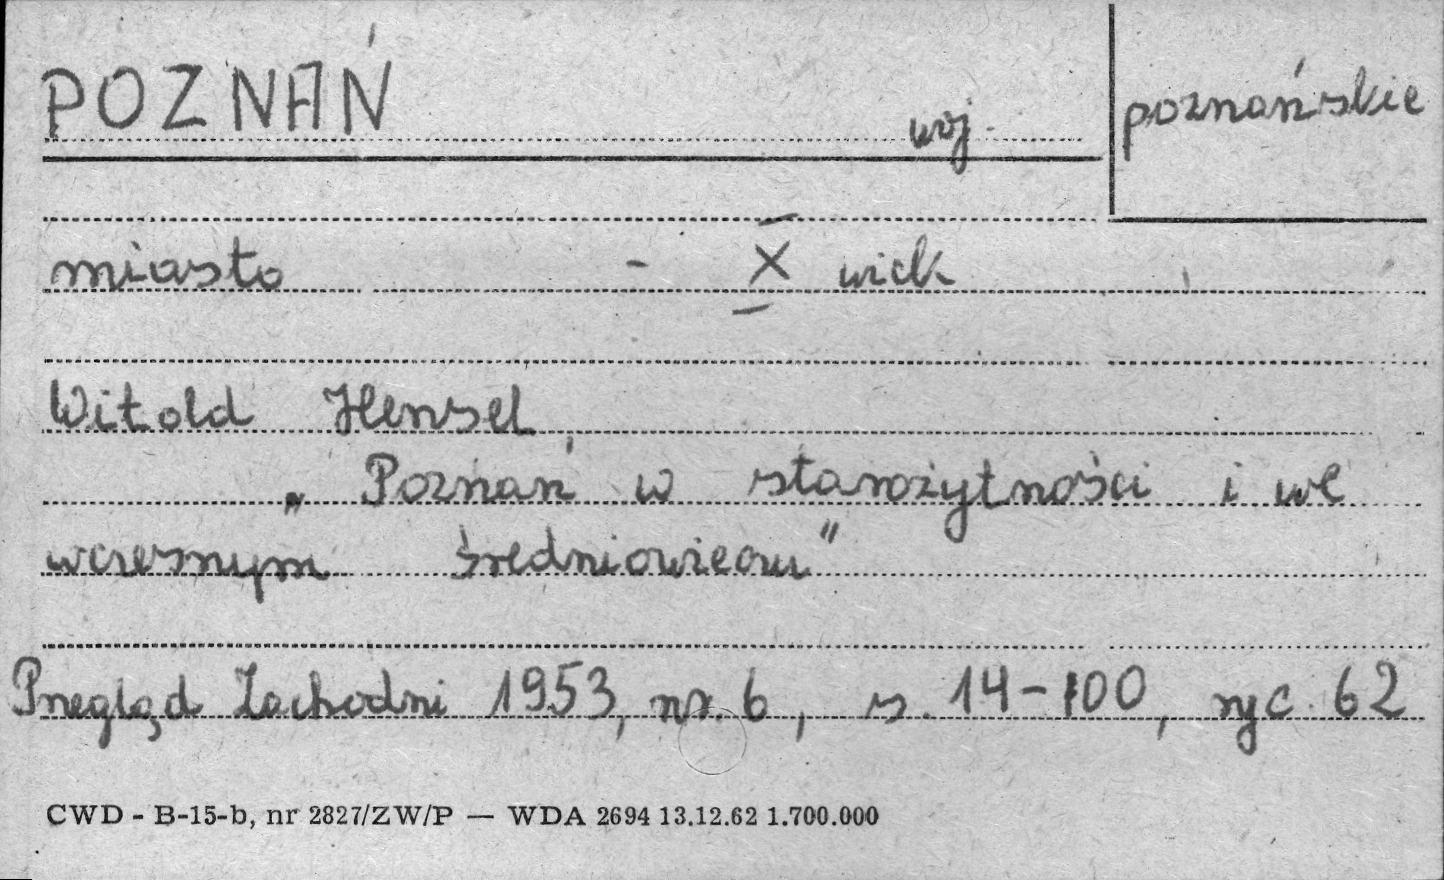 POZNAŃ woj. poznańskie
miasto - X wiek
Witold Hensel
„Poznań w starożytności i we
wczesnym średniowieczu”
Przegląd Zachodni 1953, nr. 6, s. 14-100, ryc. 62
CWD - B-15-b, nr 2827/ZW/P — WDA 2694 13.12.62 1.700.000